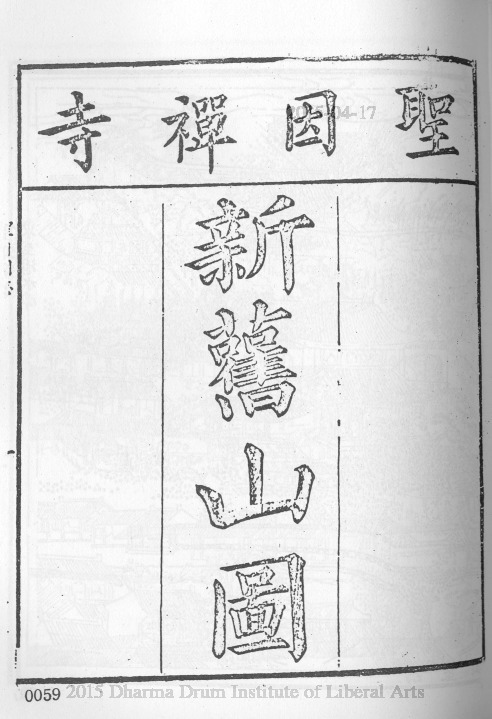 聖因禪寺
2015-04-17
新舊山圖
0059 2015 Dharma Drum Institute of Liberal Arts